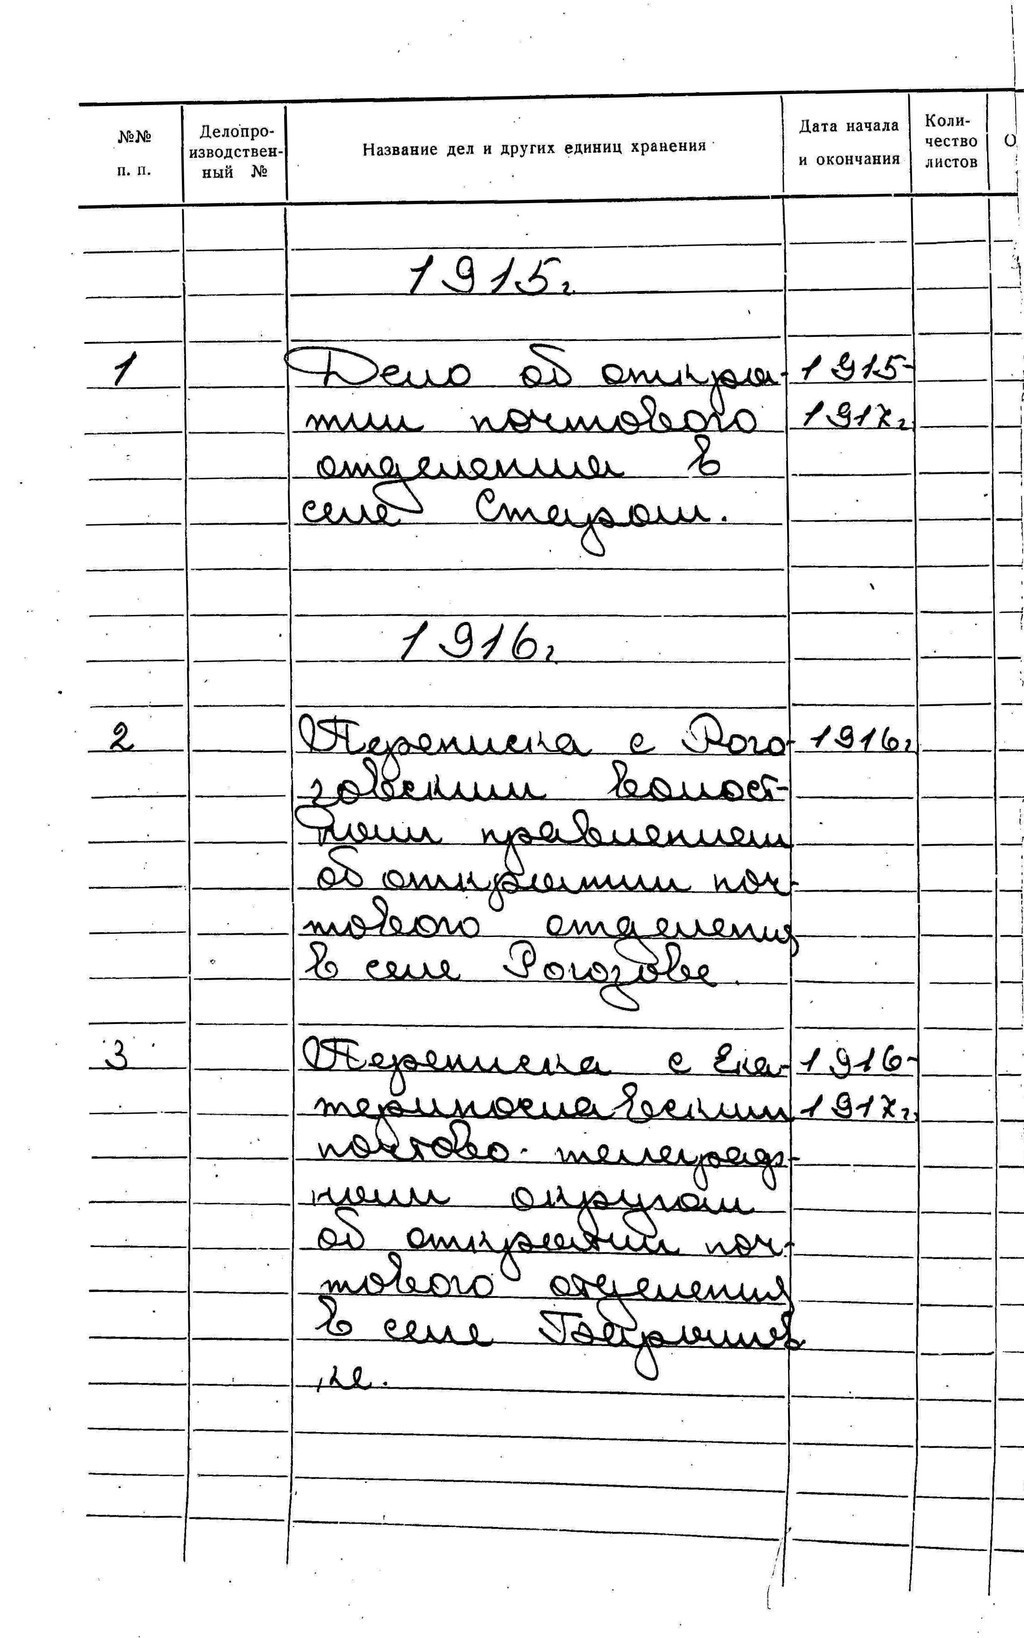 №№ п. п. Делопро-изводствен-ный № Название дел и других единиц хранения Дата начала и окончания Коли-чество листов О
1915г.
1 Дело об откры- 1915-
тии почтового 1917г.
отделения в
селе Старом.
1916г.
2 Переписка с Рого- 1916г
зовским волост-
ным правлением
об открытии поч-
тового отделения
в селе Рогозове.
3 Переписка с Ека- 1916-
теринославским 1917г.
почтово-телеграф-
ным округом
об открытии поч-
тового отделения
в селе
ке.